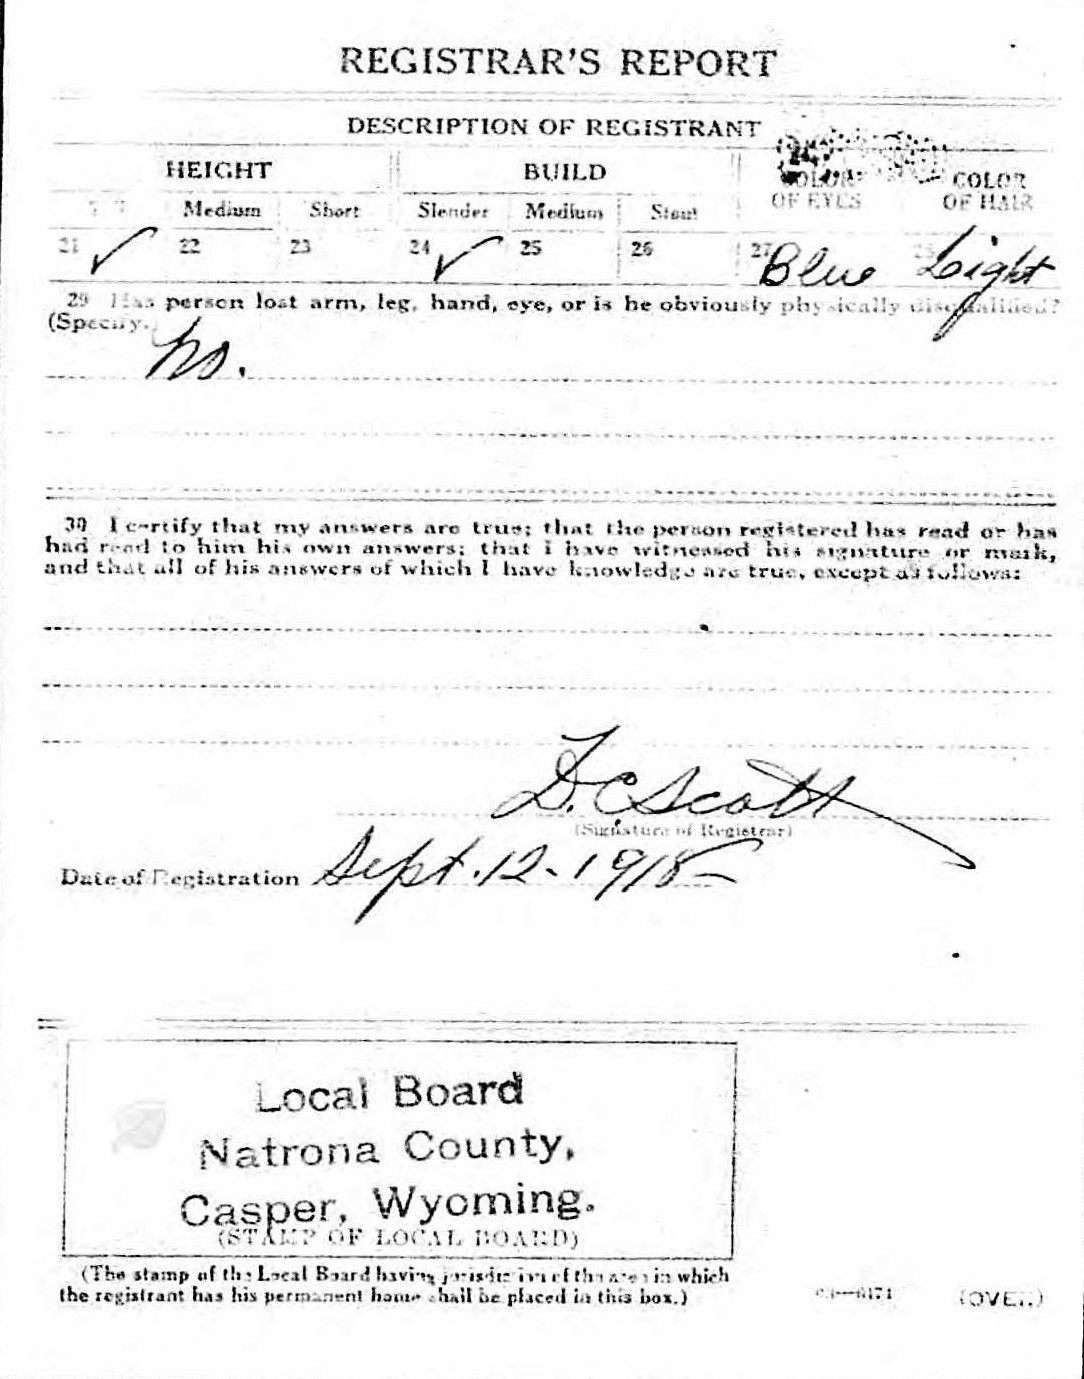 REGISTRAR'S REPORT
DESCRIPTION OF REGISTRANT
HEIGHT BUILD COLOR OF EYES COLOR OF HAIR
Medium Short Slender Medium Stout
21 ✓ 22 23 24 ✓ 25 26 27 Blue Light
29 Has person lost arm, leg, hand, eye, or is he obviously physically disqualified?
(Specify.)
No.
30 I certify that my answers are true; that the person registered has read or has
had read to him his own answers; that I have witnessed his signature or mark,
and that all of his answers of which I have knowledge are true, except as follows:
D.C Scott
(Signature of Registrar)
Date of Registration Sept. 12 - 1918 -
Local Board
Natrona County,
Casper, Wyoming.
(STAMP OF LOCAL BOARD)
(The stamp of the Local Board having jurisdiction of the area in which
the registrant has his permanent home shall be placed in this box.)
(OVER)